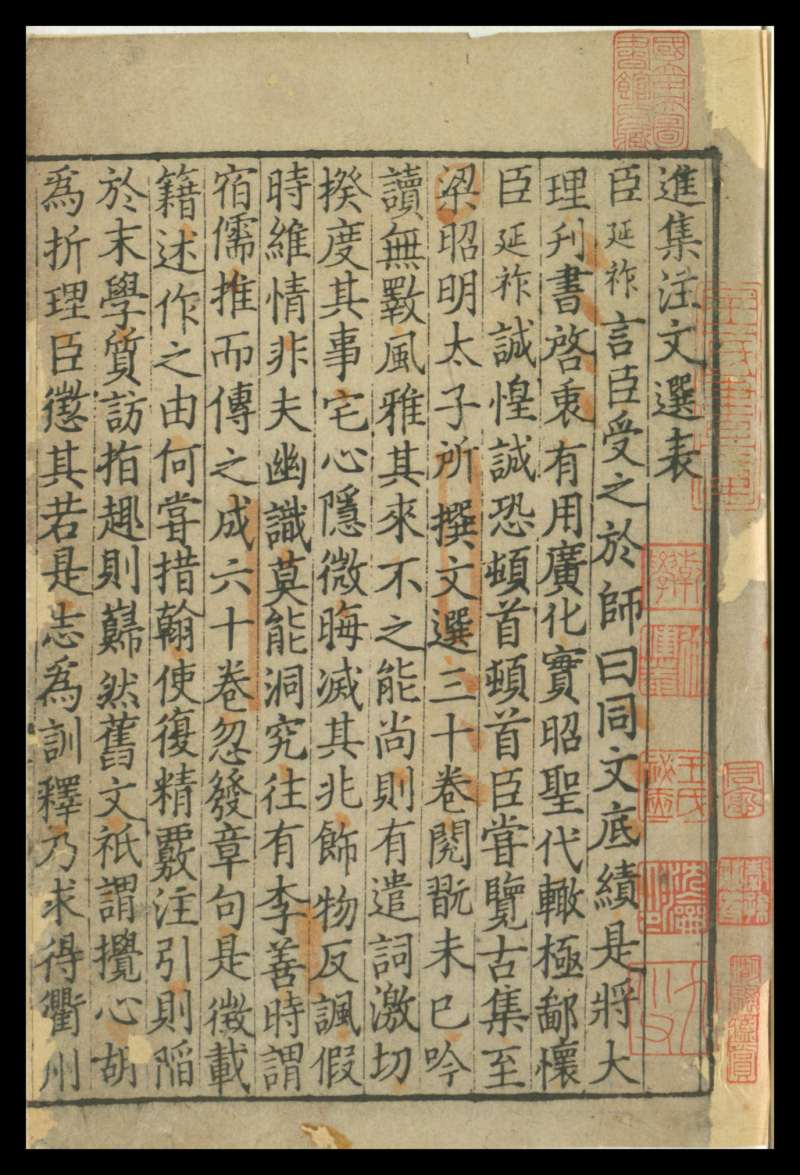 進集注文選表
臣延祚言臣受之於師曰同文底績是將大
理刋書啓衷有用廣化實昭聖代轍極鄙懷
臣延祚誠惶誠恐頓首頓首臣甞覽古集至
梁昭明太子所撰文選三十卷閱翫未已吟
讀無斁風雅其來不之能尚則有遣詞激切
揆度其事宅心隱微晦滅其兆飾物反諷假
時維情非夫幽識莫能洞究往有李善時謂
宿儒推而傳之成六十卷忽發章句是徵載
籍述作之由何甞措翰使復精覈注引則陷
於末學質訪指趣則巋然舊文祇謂攪心胡
爲折理臣懲其若是志爲訓釋乃求得衢州